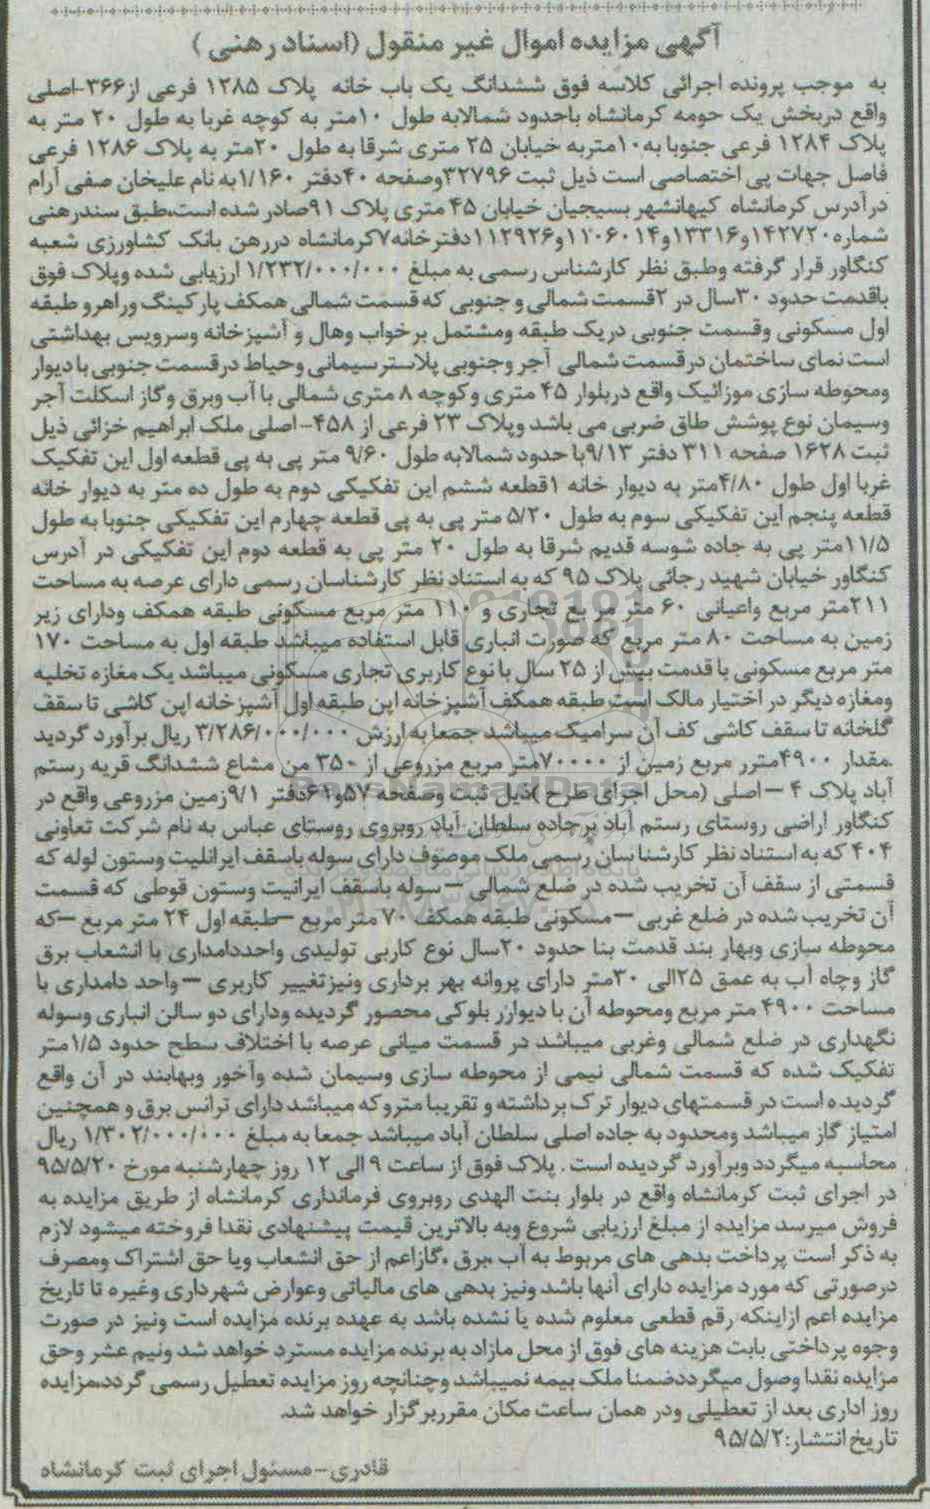 آگهی مزایده اموال غیر منقول (اسناد رهنی )
به موجب پرونده اجرائی کلاسه فوق ششدانگ یک باب خانه پلاک ۱۲۸۵ فرعی از۳۶۶-اصلی
واقع دربخش یک حومه کرمانشاه باحدود شمالابه طول ۱۰متر به کوچه غربا به طول ۲۰ متر به
پلاک ۱۲۸۴ فرعی جنوبا به۱۰متربه خیابان ۲۵ متری شرقا به طول ۲۰متر به پلاک ۱۲۸۶ فرعی
فاصل جهات پی اختصاصی است ذیل ثبت ۳۲۷۹۶وصفحه ۴۰دفتر ۱/۱۶۰به نام علیخان صفی آرام
درآدرس کرمانشاه کیهانشهر بسیجیان خیابان ۴۵ متری پلاک ۹۱صادر شده است،طبق سندرهنی
شماره۱۴۲۷۲۰و۱۳۳۱۶و۱۱۰۶۰۱۴و۱۱۲۹۲۶دفترخانه۷کرمانشاه دررهن بانک کشاورزی شعبه
کنگاور قرار گرفته وطبق نظر کارشناس رسمی به مبلغ ۱/۲۳۲/۰۰۰/۰۰۰ ارزیابی شده وپلاک فوق
باقدمت حدود ۳۰سال در ۲قسمت شمالی و جنوبی که قسمت شمالی همکف پارکینگ وراهرو طبقه
اول مسکونی وقسمت جنوبی دریک طبقه ومشتمل برخواب وهال و آشپزخانه وسرویس بهداشتی
است نمای ساختمان درقسمت شمالی آجر وجنوبی پلاسترسیمانی وحیاط درقسمت جنوبی با دیوار
ومحوطه سازی موزائیک واقع دربلوار ۴۵ متری وکوچه ۸ متری شمالی با آب وبرق وگاز اسکلت آجر
وسیمان نوع پوشش طاق ضربی می باشد وپلاک ۲۳ فرعی از ۴۵۸- اصلی ملک ابراهیم خزائی ذیل
ثبت ۱۶۲۸ صفحه ۳۱۱ دفتر ۹/۱۳با حدود شمالابه طول ۹/۶۰ متر پی به پی قطعه اول این تفکیک
غربا اول طول ۴/۸۰متر به دیوار خانه ۱قطعه ششم این تفکیکی دوم به طول ده متر به دیوار خانه
قطعه پنجم این تفکیکی سوم به طول ۵/۲۰ متر پی به پی قطعه چهارم این تفکیکی جنوبا به طول
۱۱/۵متر پی به جاده شوسه قدیم شرقا به طول ۲۰ متر پی به قطعه دوم این تفکیکی در آدرس
کنگاور خیابان شهید رجائی پلاک ۹۵ که به استناد نظر کارشناسان رسمی دارای عرصه به مساحت
۲۱۱متر مربع واعیانی ۶۰ متر مربع تجاری و ۱۱۰ متر مربع مسکونی طبقه همکف ودارای زیر
زمین به مساحت ۸۰ متر مربع که صورت انباری قابل استفاده میباشد طبقه اول به مساحت ۱۷۰
متر مربع مسکونی با قدمت بیش از ۲۵ سال با نوع کاربری تجاری مسکونی میباشد یک مغازه تخلیه
ومغازه دیگر در اختیار مالک است طبقه همکف آشپزخانه اپن طبقه اول آشپزخانه اپن کاشی تا سقف
گلخانه تا سقف کاشی کف آن سرامیک میباشد جمعا به ارزش ۳/۲۸۶/۰۰۰/۰۰۰ ریال برآورد گردید
.مقدار ۴۹۰۰مترر مربع زمین از ۷۰۰۰۰متر مربع مزروعی از ۳۵۰ من مشاع ششدانگ قریه رستم
آباد پلاک ۴ – اصلی (محل اجرای طرح )ذیل ثبت وصفحه ۵۷و۶۱دفتر ۹/۱زمین مزروعی واقع در
کنگاور اراضی روستای رستم آباد برجاده سلطان آباد روبروی روستای عباس به نام شرکت تعاونی
۴۰۴ که به استناد نظر کارشناسان رسمی ملک موصوف دارای سوله باسقف ایرانلیت وستون لوله که
قسمتی از سقف آن تخریب شده در ضلع شمالی – سوله باسقف ایرانیت وستون قوطی که قسمت
آن تخریب شده در ضلع غربی –مسکونی طبقه همکف ۷۰ متر مربع –طبقه اول ۲۴ متر مربع –که
محوطه سازی وبهار بند قدمت بنا حدود ۲۰سال نوع کاربی تولیدی واحددامداری با انشعاب برق
گاز وچاه آب به عمق ۲۵الی ۳۰متر دارای پروانه بهر برداری ونیزتغییر کاربری –واحد دامداری با
مساحت ۴۹۰۰ متر مربع ومحوطه آن با دیوارر بلوکی محصور گردیده ودارای دو سالن انباری وسوله
نگهداری در ضلع شمالی وغربی میباشد در قسمت میانی عرصه با اختلاف سطح حدود ۱/۵متر
تفکیک شده که قسمت شمالی نیمی از محوطه سازی وسیمان شده وآخور وبهابند در آن واقع
گردیده است در قسمتهای دیوار ترک برداشته و تقریبا متروکه میباشد دارای ترانس برق و همچنین
امتیاز گاز میباشد ومحدود به جاده اصلی سلطان آباد میباشد جمعا به مبلغ ۱/۳۰۲/۰۰۰/۰۰۰ ریال
محاسبه میگردد وبرآورد گردیده است . پلاک فوق از ساعت ۹ الی ۱۲ روز چهارشنبه مورخ ۹۵/۵/۲۰
در اجرای ثبت کرمانشاه واقع در بلوار بنت الهدی روبروی فرمانداری کرمانشاه از طریق مزایده به
فروش میرسد مزایده از مبلغ ارزیابی شروع وبه بالاترین قیمت پیشنهادی نقدا فروخته میشود لازم
به ذکر است پرداخت بدهی های مربوط به آب ،برق ،گازاعم از حق انشعاب ویا حق اشتراک ومصرف
درصورتی که مورد مزایده دارای آنها باشد ونیز بدهی های مالیاتی وعوارض شهرداری وغیره تا تاریخ
مزایده اعم ازاینکه رقم قطعی معلوم شده یا نشده باشد به عهده برنده مزایده است ونیز در صورت
وجوه پرداختی بابت هزینه های فوق از محل مازاد به برنده مزایده مسترد خواهد شد ونیم عشر وحق
مزایده نقدا وصول میگرددضمنا ملک بیمه نمیباشد وچنانچه روز مزایده تعطیل رسمی گردد،مزایده
روز اداری بعد از تعطیلی ودر همان ساعت مکان مقرربرگزار خواهد شد.
تاریخ انتشار:۹۵/۵/۲
قادری-مسئول اجرای ثبت کرمانشاه